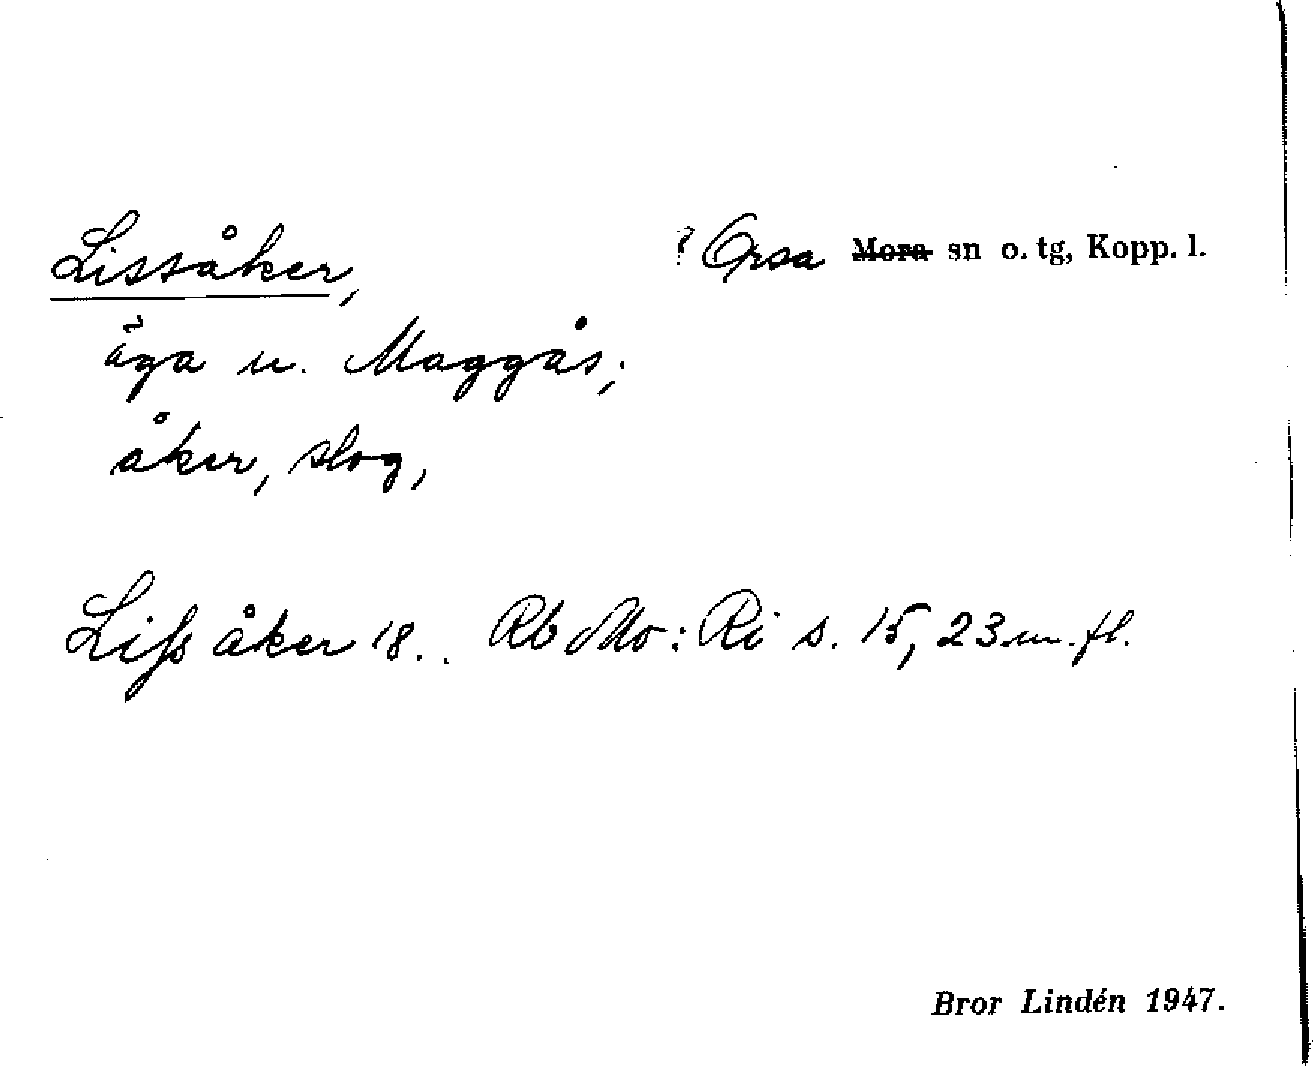 Lissåker,
? Orsa Mora sn o. tg, Kopp. l.
äga u. Maggås;
åker, slog,
Liss åker 18.. Rb Mo: Ri s. 15, 23 m. fl.
Bror Lindén 1947.